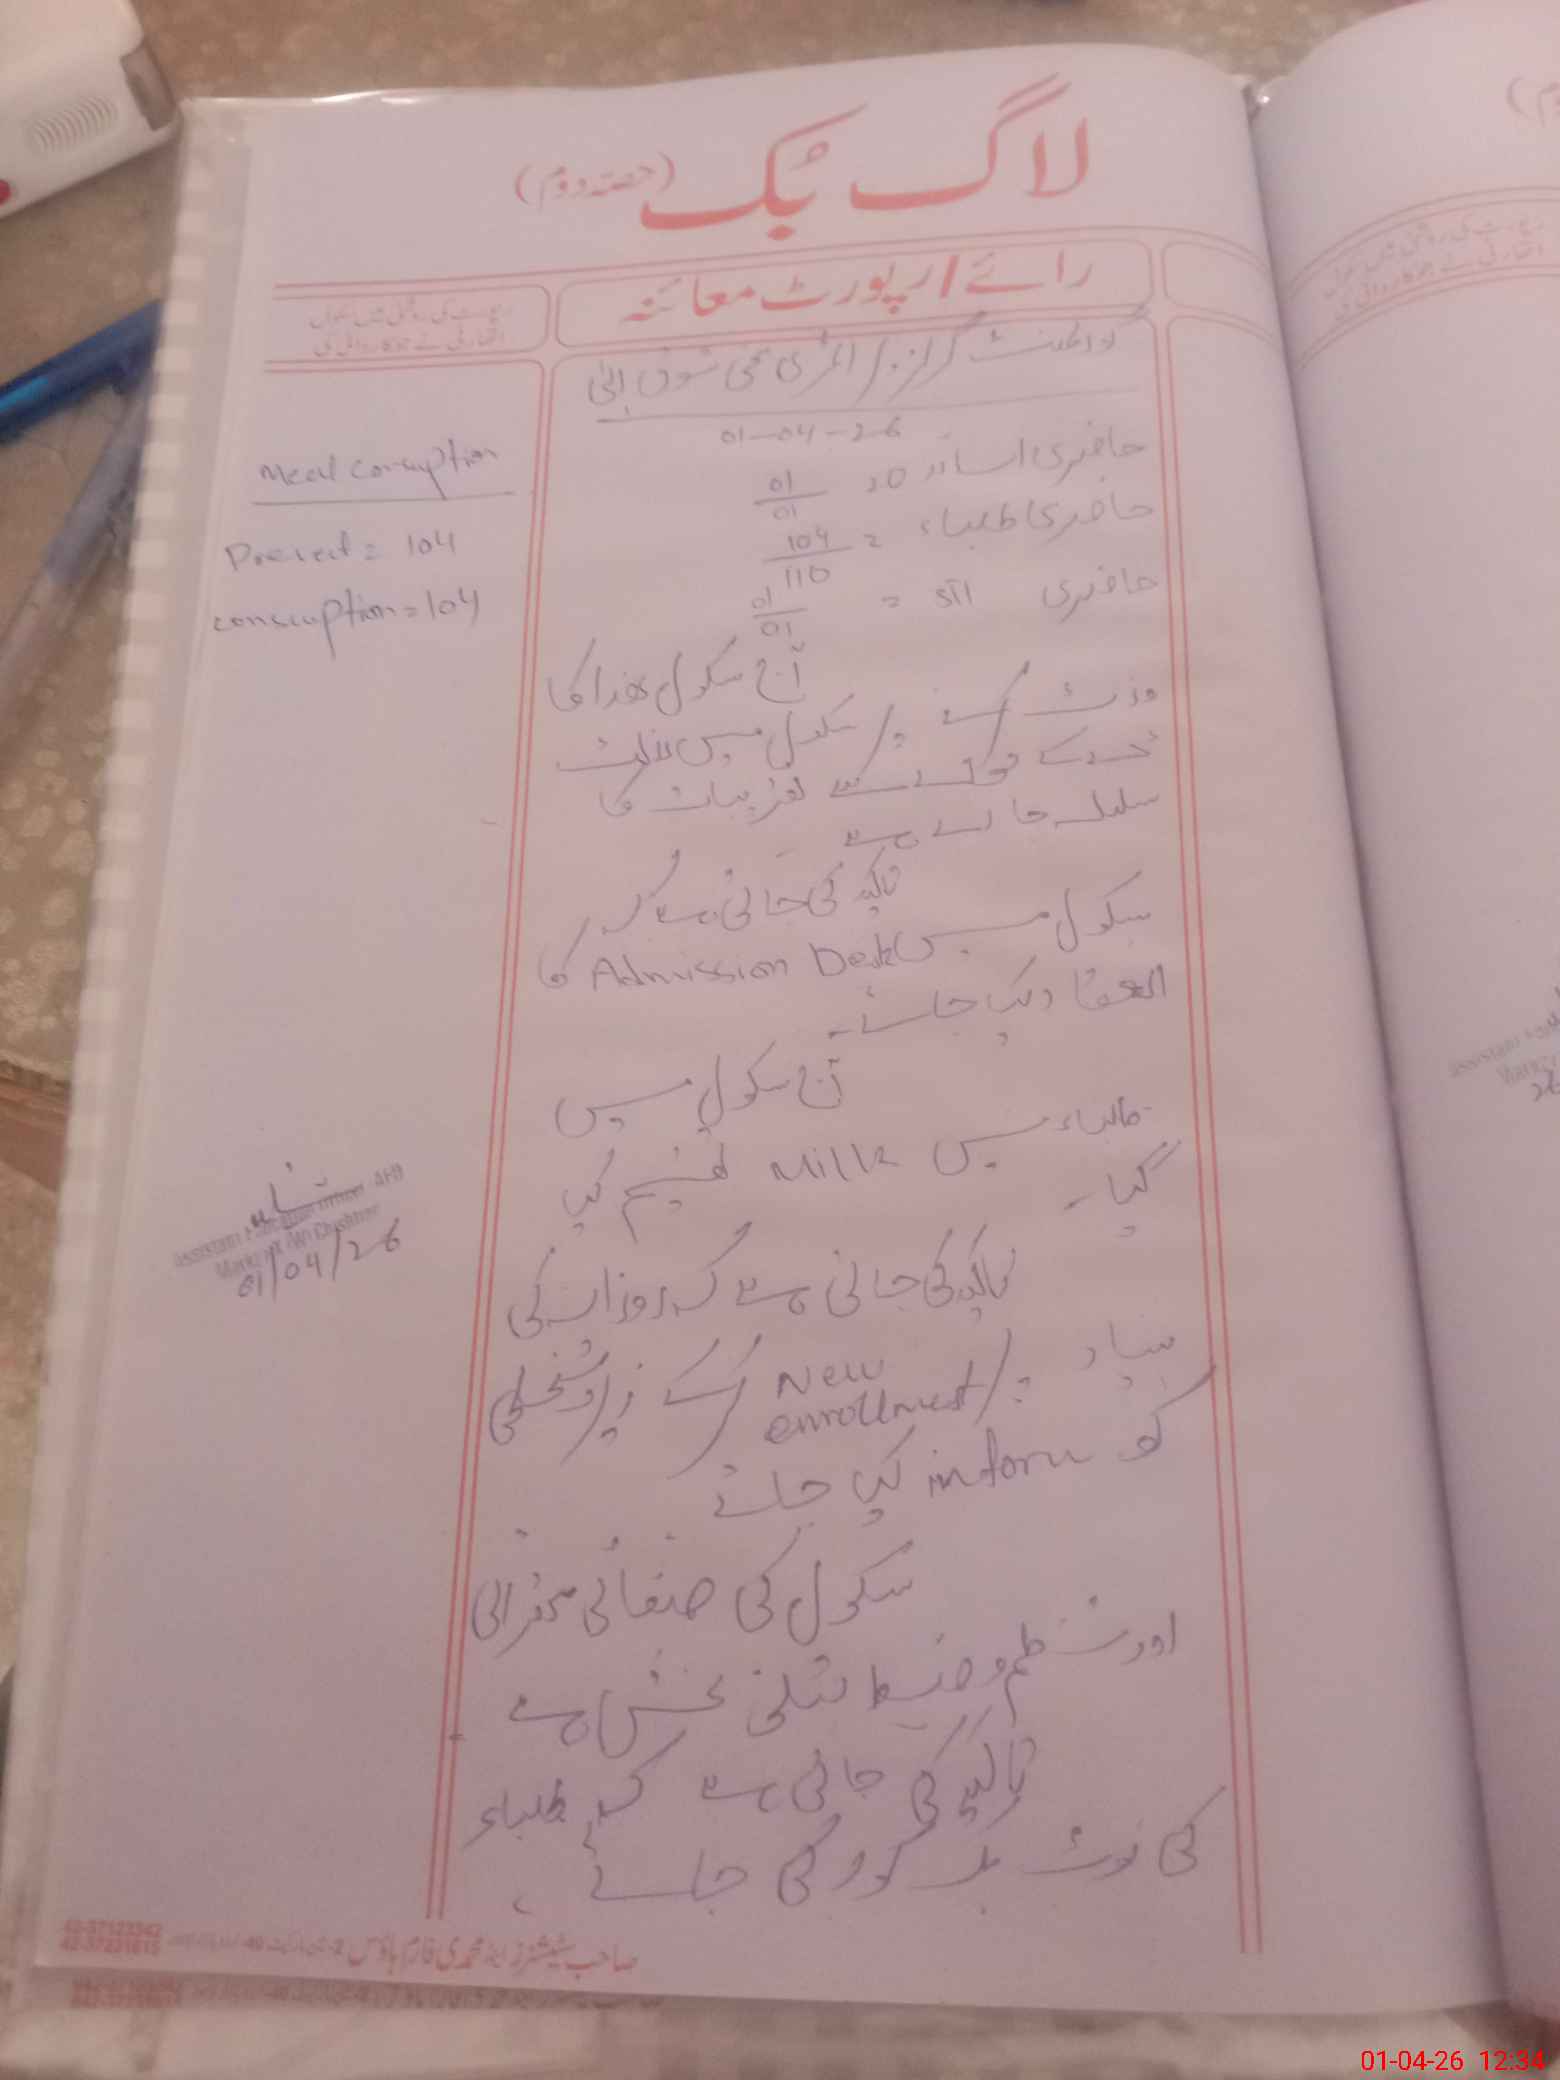 لاگ بک (حصّہ دوم)
رائے / رپورٹ معائنہ
رپورٹ کی روشنی میں سکول
اتھارٹی نے جو کارروائی کی
گورنمنٹ گرلز پرائمری سکول
01-04-26
حاضری اساتذہ = 01/01
حاضری طلباء = 104/110
حاضری STI = 01/01
آج سکول ھذا کا
وزٹ کرنے پر سکول میں
کے حوالے سے تقریبات کا
سلسلہ جاری ہے
تاکید کی جاتی ہے کہ
سکول میں Admission Desk کا
انعقاد کیا جائے۔
آج سکول میں
طلباء میں Milk تقسیم کیا
گیا۔
تاکید کی جاتی ہے کہ روزانہ کی
بنیاد پر New enrollment کر کے زیر دستخطی
کو inform کیا جائے
سکول کی صفائی ستھرائی
اور نظم و ضبط تسلی بخش ہے
تاکید کی جاتی ہے کہ طلباء
کی نوٹ بک کور کی جائے۔
Meal consuption
Present = 104
consuption = 104
Assistant Education Officer
Markaz
01/04/26
صاحب سٹیشنرز اینڈ محمدی فارم ہاؤس
42-37123342
42-37231615
Assistant
Markaz
01-04-26 12:34